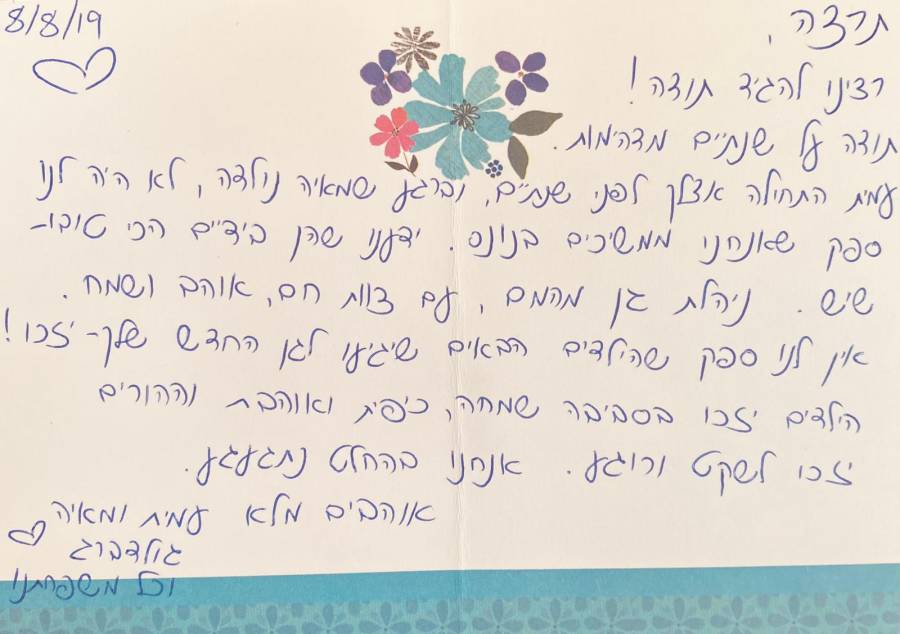 8/8/19
תרצה,
רצינו להגיד תודה!
תודה על שנתיים מדהימות.
עמית התחילה אצלך לפני שנתיים, וברגע שמאיה נולדה, לא היה לנו
ספק שאנחנו ממשיכים בנונס. ידענו שהן בידיים הכי טובות
שיש. ניהלת גן מהמם, עם צוות חם, אוהב ושמח.
אין לנו ספק שהילדים הבאים שיגיעו לגן החדש שלך - יזכו!
הילדים יזכו בסביבה שמחה, כיפית ואוהבת וההורים
יזכו לשקט ורוגע. אנחנו בהחלט נתגעגע.
אוהבים מלא עמית ומאיה
גולדברג
וכל משפחתנו